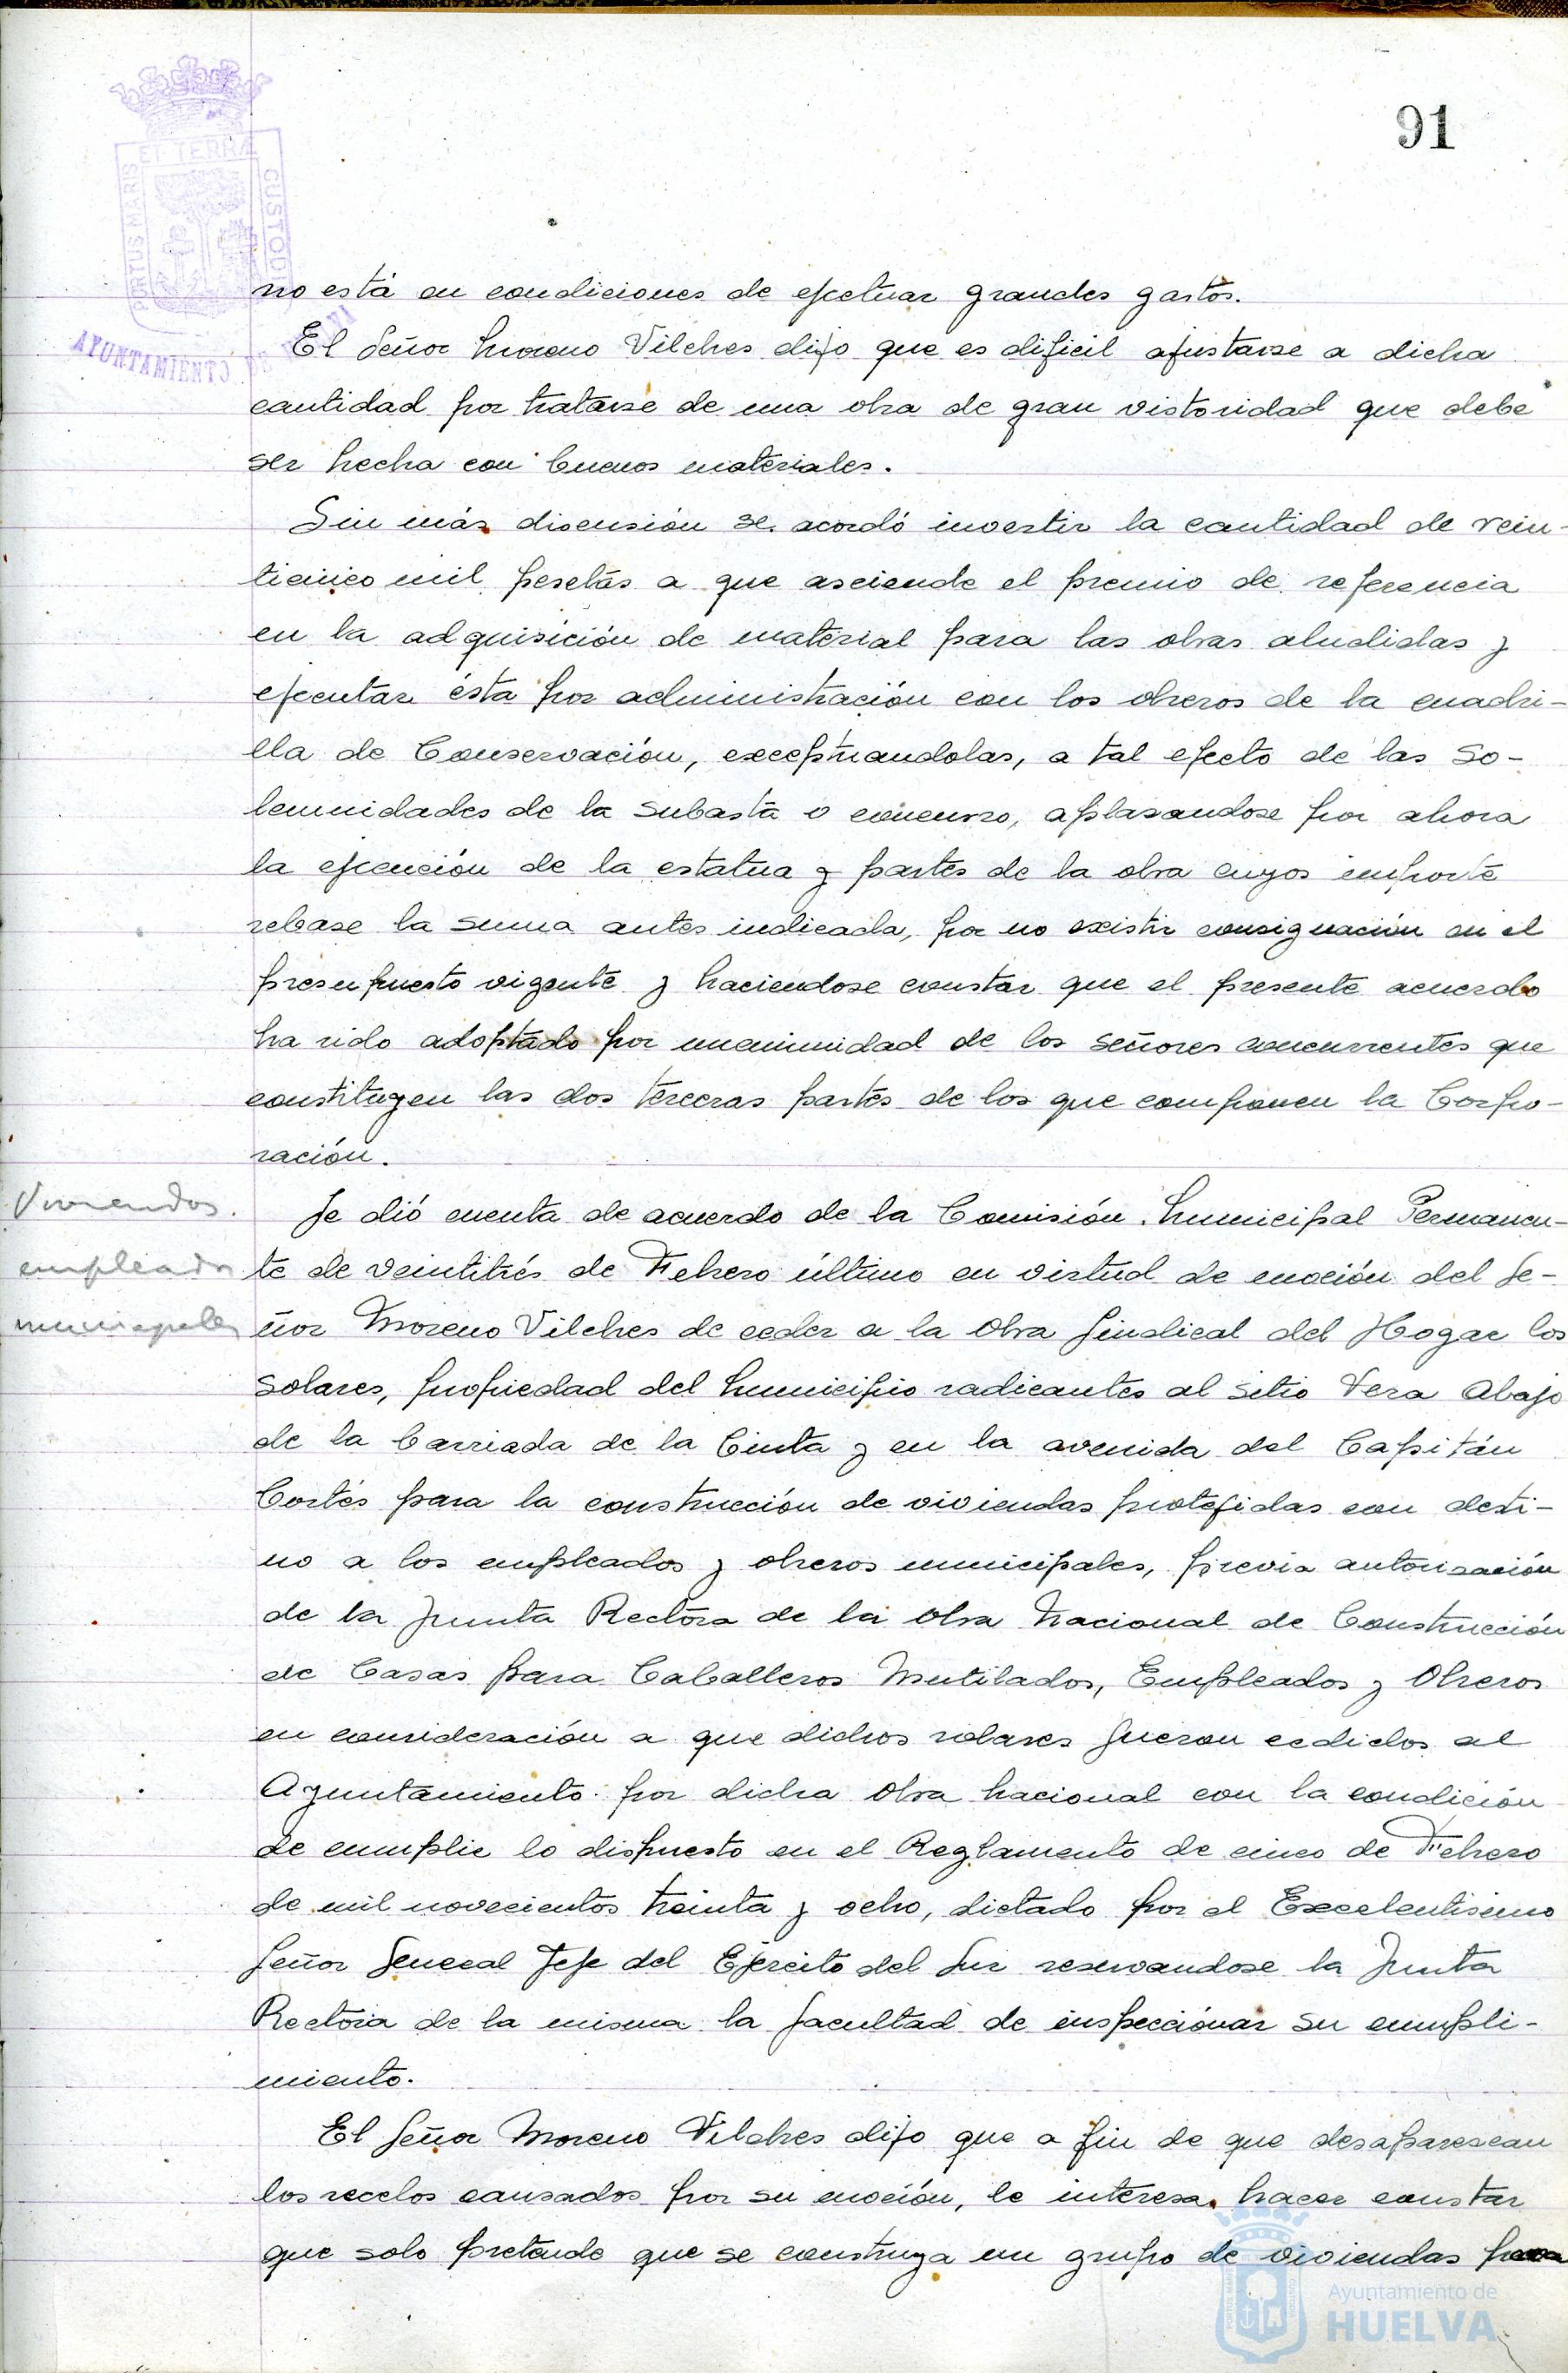 91
PORTUS MARIS ET TERRÆ CUSTODIA
AYUNTAMIENTO DE
no está en condiciones de efectuar grandes gastos.
El Señor Moreno Vilches dijo que es dificil ajustarse a dicha
cantidad por tratarse de una obra de gran vistoridad que debe
ser hecha con buenos materiales.
Sin más discusión se acordó invertir la cantidad de vein-
ticinco mil pesetas a que asciende el premio de referencia
en la adquisición de material para las obras aludidas y
ejecutar ésta por administración con los obreros de la cuadri-
lla de Conservación, exceptuandolas, a tal efecto de las so-
lemnidades de la subasta o concurso, aplasandose por ahora
la ejecución de la estatua y partes de la obra cuyos importe
rebase la suma antes indicada, por no existir consignación en el
presupuesto vigente y haciendose constar que el presente acuerdo
ha sido adoptado por unanimidad de los señores concurrentes que
constituyen las dos terceras partes de los que componen la Corpo-
ración.
Viviendas.
empleados
municipales
Se dió cuenta de acuerdo de la Comisión Municipal Permanen-
te de veintitrés de Febrero último en virtud de moción del Se-
ñor Moreno Vilches de ceder a la Obra Sindical del Hogar los
solares, propiedad del Municipio radicantes al sitio Vera Abajo
de la barriada de la Cinta y en la avenida del Capitán
Cortés para la construcción de viviendas protegidas con desti-
no a los empleados y obreros municipales, previa autorización
de la Junta Rectora de la Obra Nacional de Construcción
de Casas para Caballeros Mutilados, Empleados y Obreros
en consideración a que dichos solares fueron cedidos al
Ayuntamiento por dicha Obra Nacional con la condición
de cumplir lo dispuesto en el Reglamento de cinco de Febrero
de mil novecientos treinta y ocho, dictado por el Excelentisimo
Señor General Jefe del Ejército del Sur reservandose la Junta
Rectora de la misma la facultad de inspeccionar su cumpli-
miento.
El Señor Moreno Vilches dijo que a fin de que desaparescan
los recelos causados por su moción, le interesa hacer constar
que solo pretende que se construya un grupo de viviendas para
Ayuntamiento de
HUELVA